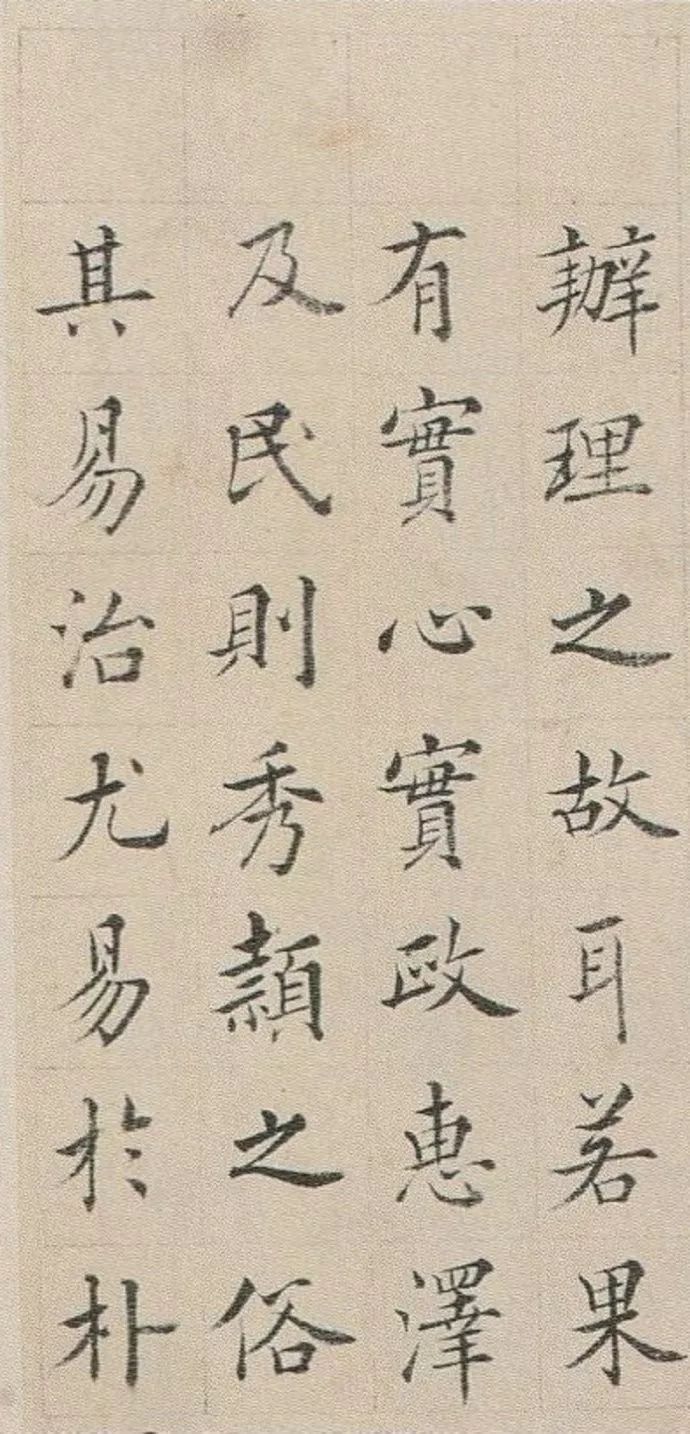 辦理之故耳若果
有實心實政惠澤
及民則秀頴之俗
其易治尤易於朴